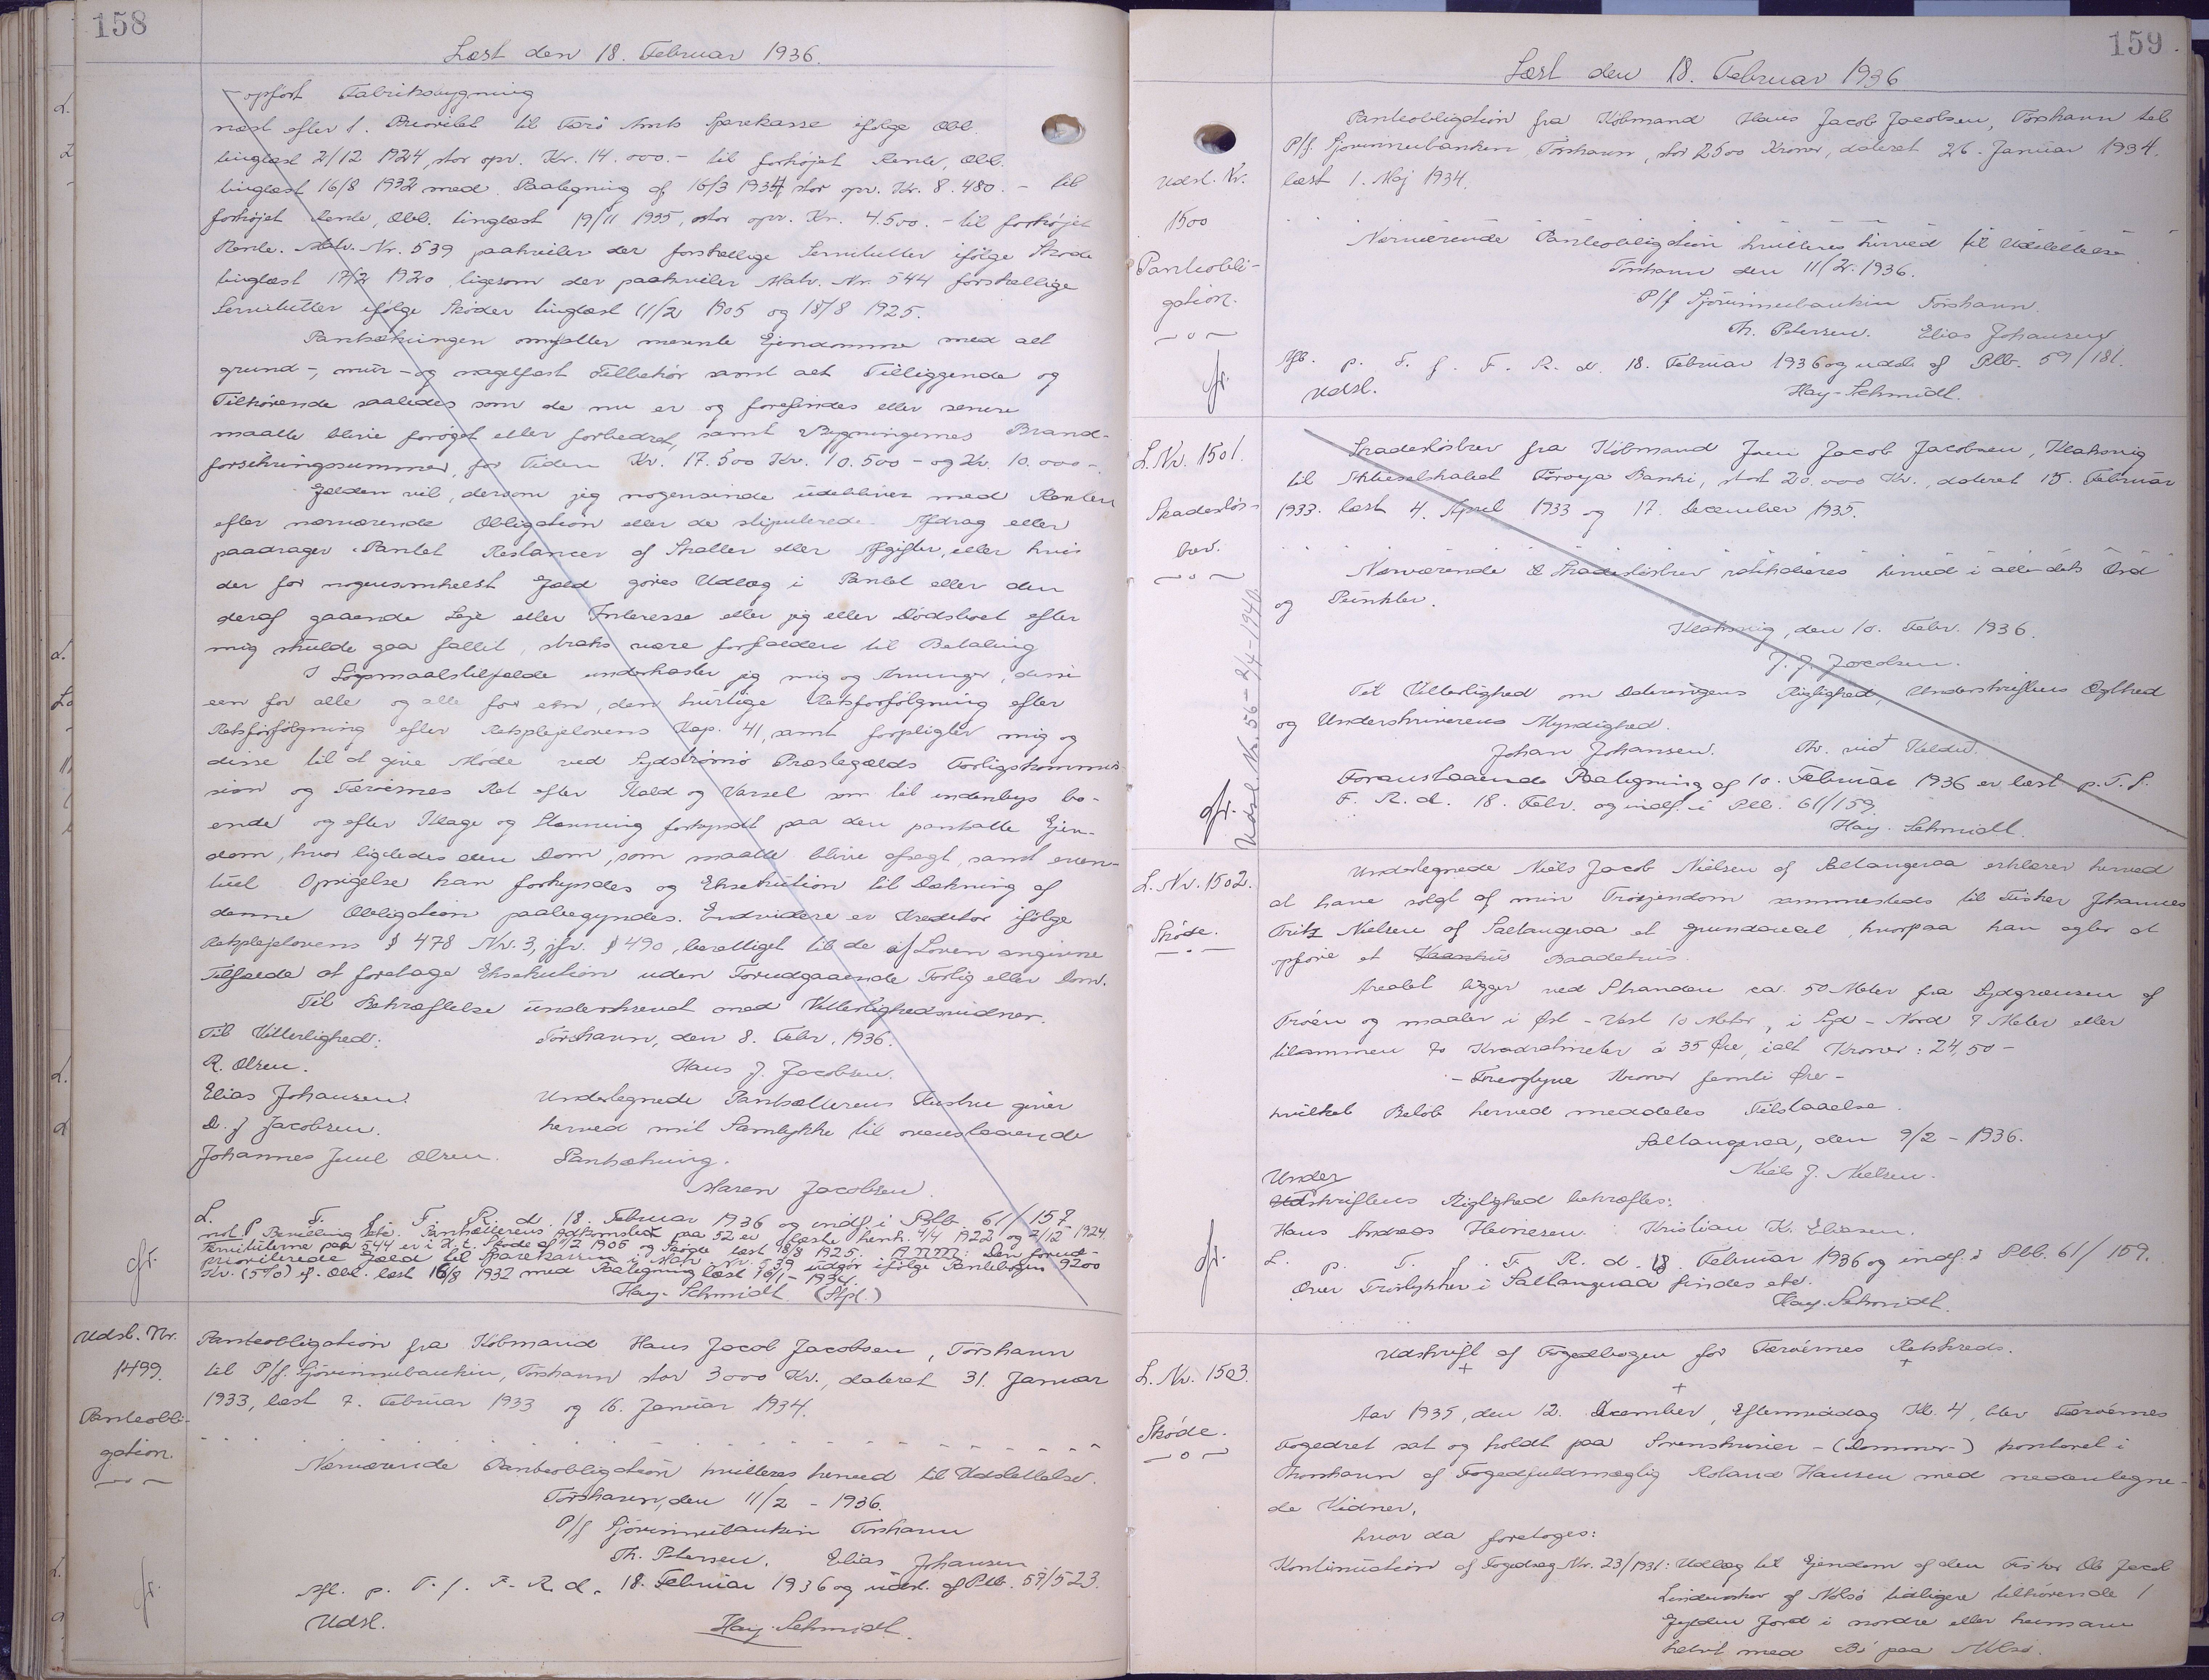 158
Læst den 18. Februar 1936.
opført Fabriksbygning
næst efter 1. Prioritet til Færø Amts Sparekasse ifølge Obl.
tinglæst 2/12 1924, stor opr. Kr. 14.000.- til forhøjet Rente, Obl.
tinglæst 16/8 1932 med Paategning af 16/3 1934 stor opr. Kr. 8.480.- til
forhøjet Rente, Obl. tinglæst 19/11 1935, stor opr. Kr. 4.500.- til forhøjet
Rente. Matr. Nr. 539 paahviler der forskellige Servitutter ifølge Skøde
tinglæst 17/2 1920, ligesom der paahviler Matr. Nr. 544 forskellige
Servitutter ifølge Skøder tinglæst 11/2 1905 og 18/8 1925.
Pantsætningen omfatter nævnte Ejendomme med alt
grund-, mur- og nagelfast Tilbehør samt alt Tilliggende og
Tilhørende saaledes som de nu er og forefindes eller senere
maatte blive forøget eller forbedret, samt Bygningernes Brand-
forsikringssummer, for Tiden Kr. 17.500 Kr. 10.500 - og Kr. 10.000 -.
Gælden vil, dersom jeg nogensinde udebliver med Renten
efter nærværende Obligation eller de stipulerede Afdrag eller
paadrager Pantet Restancer af Skatter eller Afgifter, eller hvis
der for nogensomhelst Gæld gøres Udlæg i Pantet eller den
deraf gaaende Leje eller Interesse eller jeg eller Dødsboet efter
mig skulde gaa fallit, straks være forfalden til Betaling
I Søgsmaalstilfælde underkaster jeg mig og Arvinger, disse
een for alle og alle for een, den hurtige Retsforfølgning efter
Retsforfølgning efter Retsplejelovens Kap. 41, samt forpligter mig og
disse til at give Møde ved Sydstrømø Præstegælds Forligskommis-
sion og Færøernes Ret efter Kald og Varsel som til indenbys bo-
ende og efter Klage og Stævning forkyndt paa den pantsatte Ejen-
dom, hvor ligeledes den Dom, som maatte blive afsagt, samt even-
tuel Opsigelse kan forkyndes og Eksekution til Dækning af
denne Obligation paabegyndes. Endvidere er Kreditor ifølge
Retsplejelovens § 478 Nr. 3, jfr. § 490, berettiget til de af Loven angivne
Tilfælde at foretage Eksekution uden Forudgaaende Forlig eller Dom.
Til Bekræftelse underskrevet med Vitterlighedsvidner.
Til Vitterlighed: Tórshavn, den 8. Febr. 1936.
R. Olsen. Hans J. Jacobsen.
Elias Johansen. Undertegnede Pantsætterens Hustru giver
D. J. Jacobsen. herved mit Samtykke til ovenstaaende
Johannes Juul Olsen. Pantsætning.
Maren Jacobsen.
L. p. T. f. F. R. d. 18. Februar 1936 og indf. i Plb. 61/157
not. Bevilling etc. Pantsætterens Adkomster paa 52 er læste henh. 4/4 1922 og 2/12 1924
Servitutterne paa 544 er i H. t. Skøde af 11/2 1905 og Skøde læst 18/8 1925. ANM: Den forud-
prioriterede Gæld til Sparekassen i Matr. Nr. 539 udgør ifølge Pantebogen 9200
Kr. (5%) jf. Obl. læst 16/8 1932 med Paategning læst 16/1 - 1934.
Hay-Schmidt (Stpl.)
Udsl. Nr.
1499.
Panteobli-
gation.
Panteobligation fra Købmand Hans Jacob Jacobsen, Tórshavn
til P/f. Sjóvinnubankin, Tórshavn stor 3000 Kr., dateret 31. Januar
1933, læst 7. Februar 1933 og 16. Januar 1934.
Nærværende Panteobligation kvitteres herved til Udslettelse.
Tórshavn, den 11/2 - 1936.
P/f Sjóvinnubankin Tórshavn
Th. Petersen. Elias Johansen
Afl. p. T. f. F. R. d. 18. Februar 1936 og udsl. af Plb. 59/523.
Udsl. Hay-Schmidt.
159
Læst den 18. Februar 1936
Udsl. Nr.
1500
Panteobli-
gation.
Panteobligation fra Købmand Hans Jacob Jacobsen, Tórshavn til
P/f. Sjóvinnubankin, Tórshavn, stor 2500 Kroner, dateret 26. Januar 1934.
læst 1. Maj 1934.
Nærværende Panteobligation kvitteres herved til Udslettelse.
Tórshavn den 11/2. 1936.
P/f Sjóvinnubankin Tórshavn.
Th. Petersen. Elias Johansen
Afl. p. T. f. F. R. d. 18. Februar 1936 og udsl. af Plb. 59/181.
Udsl. Hay-Schmidt.
L. Nr. 1501.
Skadesløs-
brev.
Udsl. Nr. 56 - 2/4 - 1940
Skadesløsbrev fra Købmand Joen Jacob Jacobsen, Klaksvig
til Aktieselskabet Føroya Banki, stort 20.000 Kr., dateret 15. Februar
1933. læst 4. April 1933 og 17. December 1935.
Nærværende Skadesløsbrev ratihaberes herved i alle dets Ord
og Punkter.
Klaksvig, den 10. Febr. 1936.
J. J. Jacobsen.
Til Vitterlighed om Dateringens Rigtighed, Underskriftens Ægthed
og Underskriverens Myndighed.
Johan Johansen. Th. við Keldu.
Foranstaaende Paategning af 10. Februar 1936 er læst p. T. f.
F. R. d. 18. Febr. og indf. i Plb. 61/159.
Hay-Schmidt.
L. Nr. 1502.
Skøde.
Undertegnede Niels Jacob Nielsen af Saltangeraa erklærer herved
at have solgt af min Trøejendom sammesteds til Fisker Johannes
Fritz Nielsen af Saltangeraa et Grundareal, hvorpaa han agter at
opføre et Baadehus.
Arealet ligger ved Stranden ca. 50 Meter fra Sydgrænsen af
Trøen og maaler i Øst - Vest 10 Meter, i Syd - Nord 7 Meter eller
tilsammen 70 Kvadratmeter á 35 Øre, ialt Kroner: 24,50 -
- Fireogtyve Kroner femti Øre -
hvilket Beløb herved meddeles Tilstaaelse.
Saltangeraa, den 9/2 - 1936.
Niels J. Nielsen.
Under
Udskriftens Rigtighed bekræftes:
Hans Andreas Heinesen. Kristian K. Eliasen.
L. p. T. f. F. R. d. 18. Februar 1936 og indf. i Plb. 61/159.
Over Trøstykker i Saltangeraa findes etc.
Hay-Schmidt.
L. Nr. 1503.
Skøde.
Udskrift af Fogedbogen for Færøernes Retskreds.
Aar 1935, den 12. December, Eftermiddag Kl. 4, blev Færøernes
Fogedret sat og holdt paa Sorenskriver - (Dommer-) kontoret i
Thorshavn af Fogedfuldmægtig Roland Hansen med nedentegne-
de Vidner,
hvor da foretoges:
Kontinuation af Fogedsag Nr. 23/1931: Udlæg til Ejendom af den Fisker Ole Jacob
Lindenskov af Nolsø tidligere tilhørende 1
Gylden Jord i nordre eller heimaru
helvt med Bø paa Nolsø.